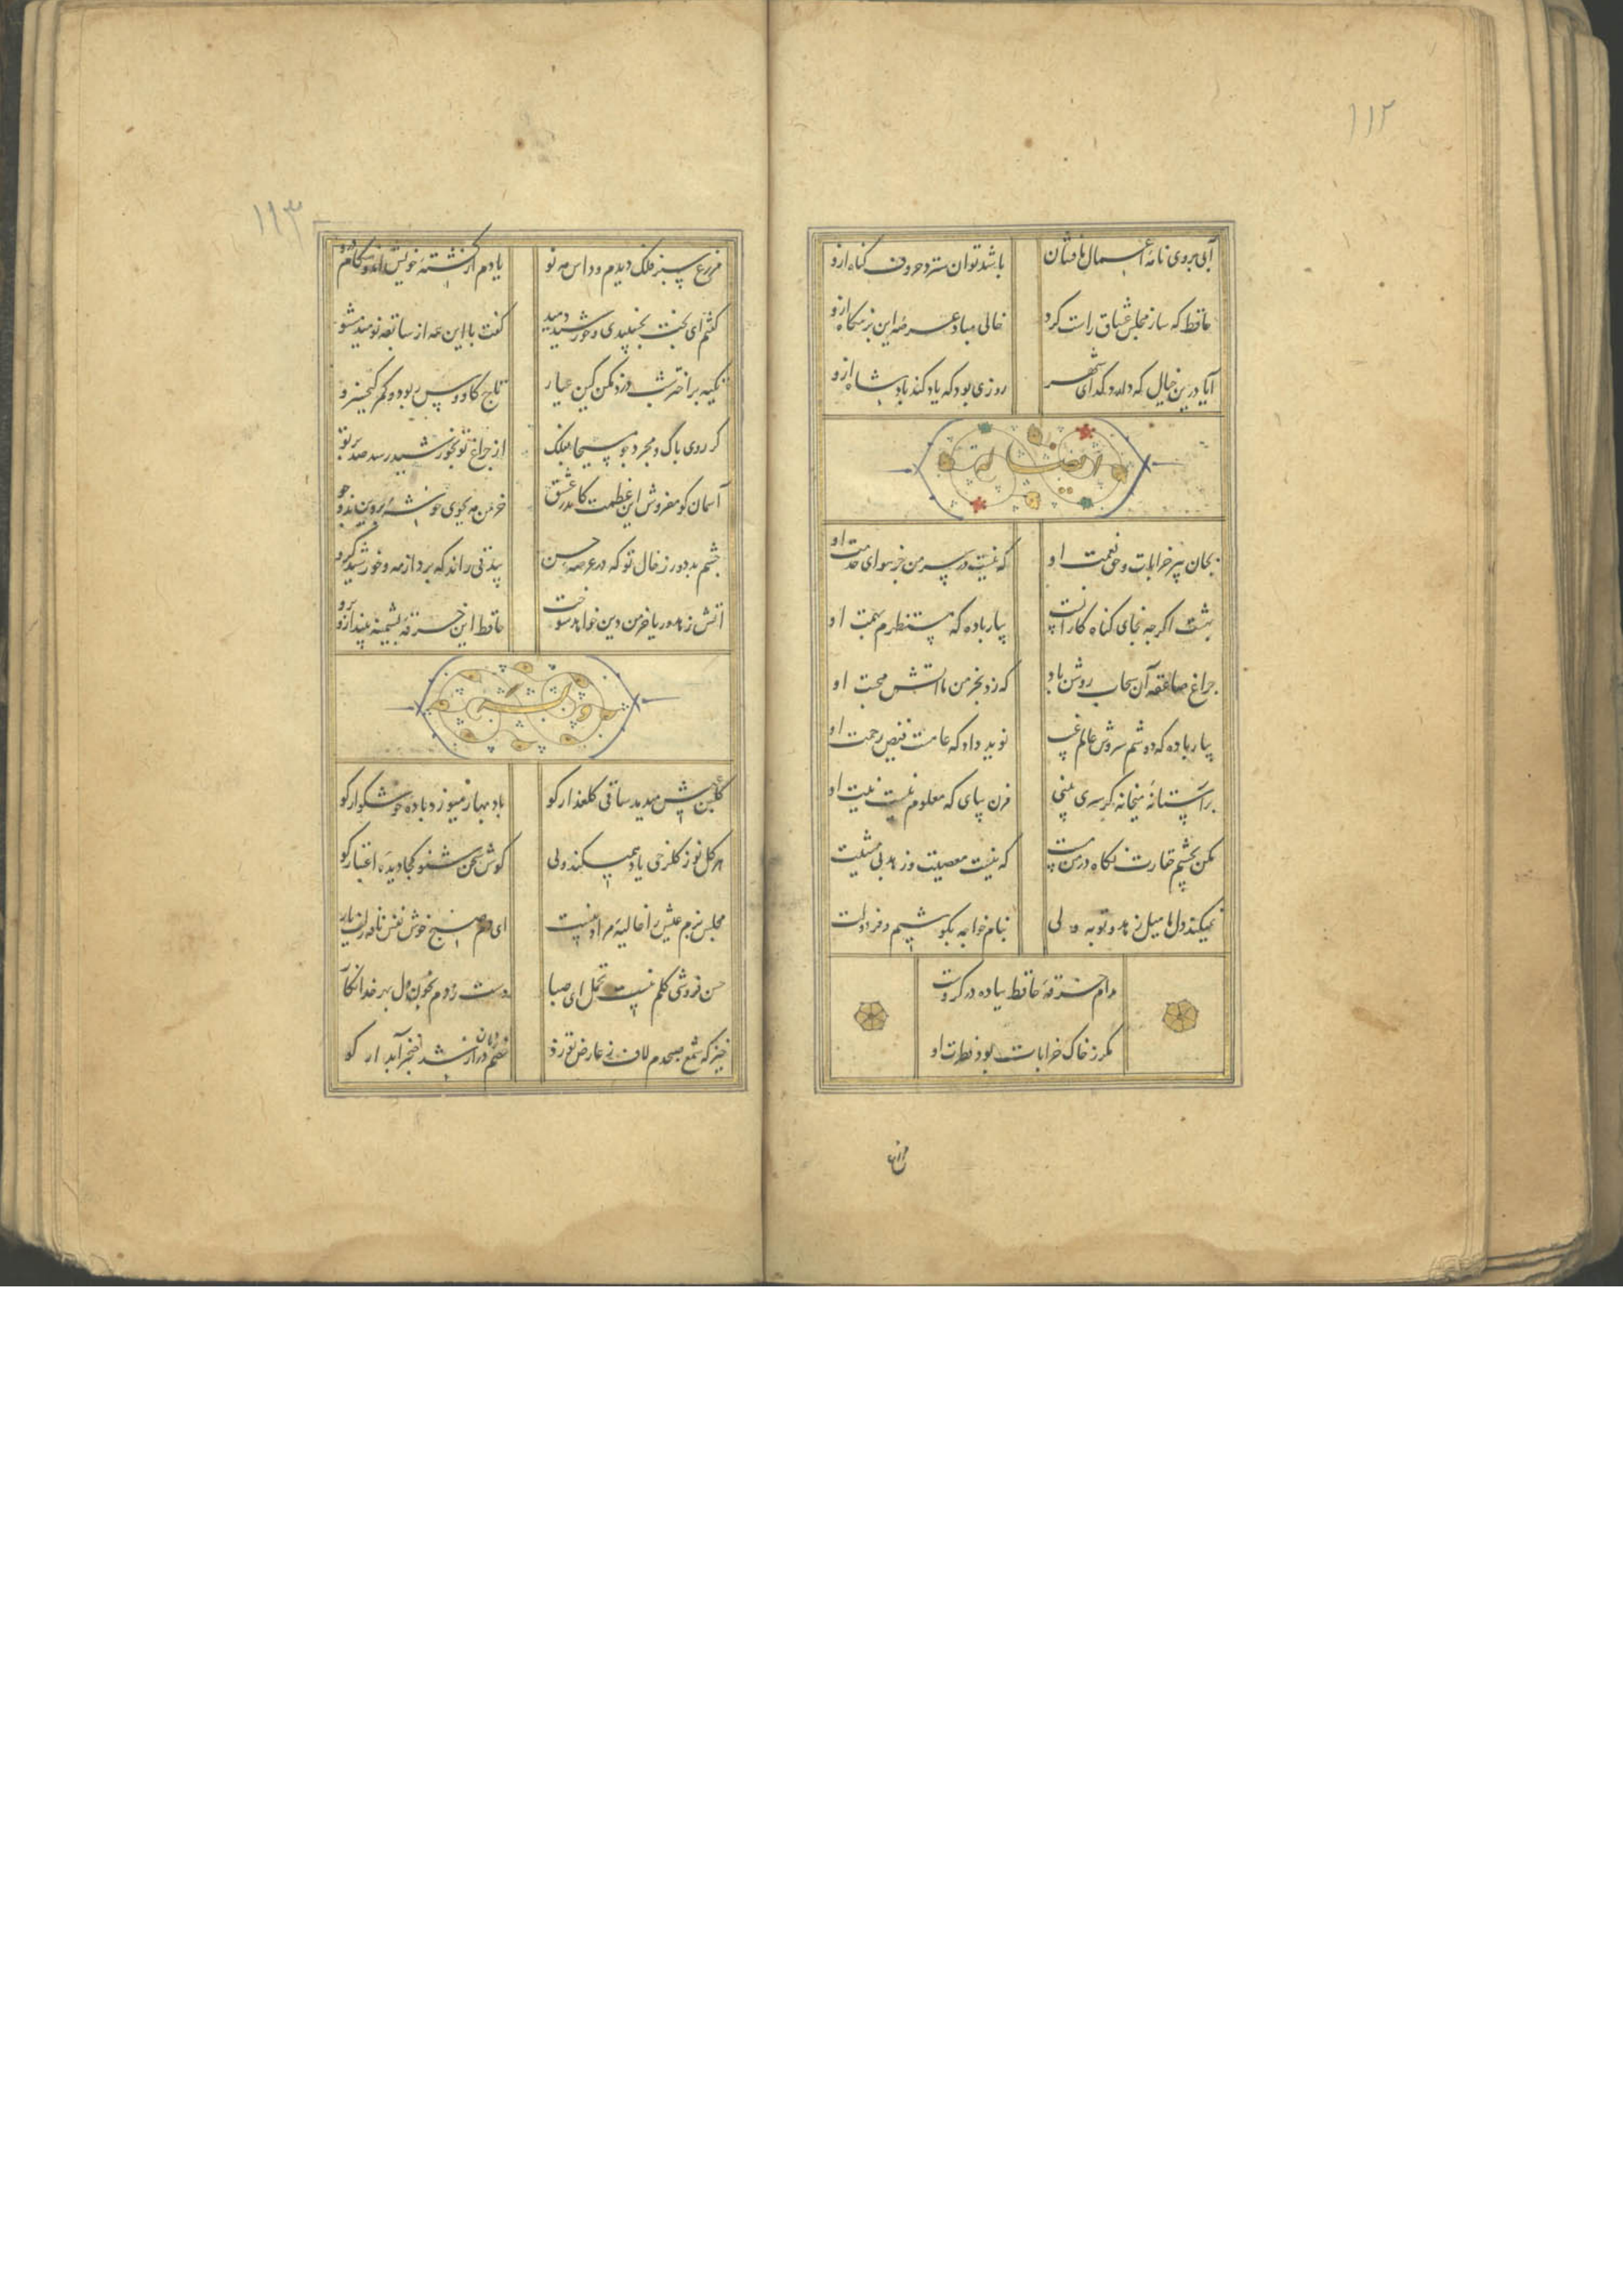 ١١٢
آبی بروی نامهٔ اعمال ما فشان
باشد توان سترد حروف کناه ازو
حافظ که ساز مجلس عشاق راست کرد
خالی مباد عرصهٔ این بزمکاه ازو
آیا درین خیال که دارد کدای شهر
روزی بود که یاد کند بادشاه ازو
ایضا له
بجان پیر خرابات و حق نعمت او
که نیست در سر من جز سوای خدمت او
بهشت اکرچه نجای کناه کارانست
بیار باده که مستظهرم بهمت او
چراغ صاعقه آن سحاب روشن باد
که زد بخرمن ما اتش محبت او
بیار باده که دوشم سروش عالم غیب
نوید داد که عامست فیض رحمت او
بر استانهٔ میخانه کر سری بینی
مزن بپای که معلوم نیست نیت او
مکن بچشم حقارت نکاه در من مست
که نیست معصیت و زهد بی مشیت او
نمیکند دل ما میل زهد و توبه ولی
بنام خواجه بکوشیم و فر دولت او
مدام خرقهٔ حافظ بباده در کروست
مکر ز خاک خرابات بود فطرت او
مزرع
١١٣
مزرع سبز فلک دیدم و داس مه نو
یادم از کشتهٔ خویش امد و هنکام درو
کفتم ای بخت بخسپیدی و خورشید دمید
کفت با این همه از سابقه نومید مشو
تکیه بر اختر شب دزد مکن کین عیار
تاج کاووس ربود و کمر کیخسرو
کر روی پاک و مجرد چو مسیحا بفلک
از چراغ تو بخورشید رسد صد پرتو
آسمان کو مفروش این عظمت کاندر عشق
خرمن مه بجوی خوشهٔ پروین بدو جو
چشم بد دور ز خال تو که در عرصهٔ حسن
بیذقی راند که برد از مه و خورشید کرو
اتش زهد و ریا خرمن دین خواهد سوخت
حافظ این خرقهٔ پشمینه بینداز و برو
وله
کلبن عیش میدمد ساقی کلعذار کو
باد بهار میوزد باده خوشکوار کو
هر کل نو ز کلرخی یاد همیکند ولی
کوش سخن شنو کجا دیدهٔ اعتبار کو
مجلس بزم عیش را غالیهٔ مراد نیست
ای دم صبح خوش نفس نافهٔ زلف یار کو
حسن فروشی کلم نیست تحمل ای صبا
دست زدم بخون دل بهر خدا نکار کو
خیز که شمع صبحدم لاف ز عارض تو زد
خصم زبان دراز شد خنجر آبدار کو